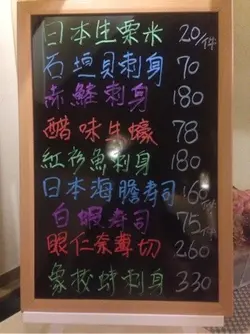 日本生粟米 20/件
石垣貝刺身 70
赤鯥刺身 180
醋味生蠔 78
紅衫魚刺身 180
日本海膽壽司 160/件
白蝦壽司 75/件
眼仁奈薄切 260
象拔蚌刺身 330